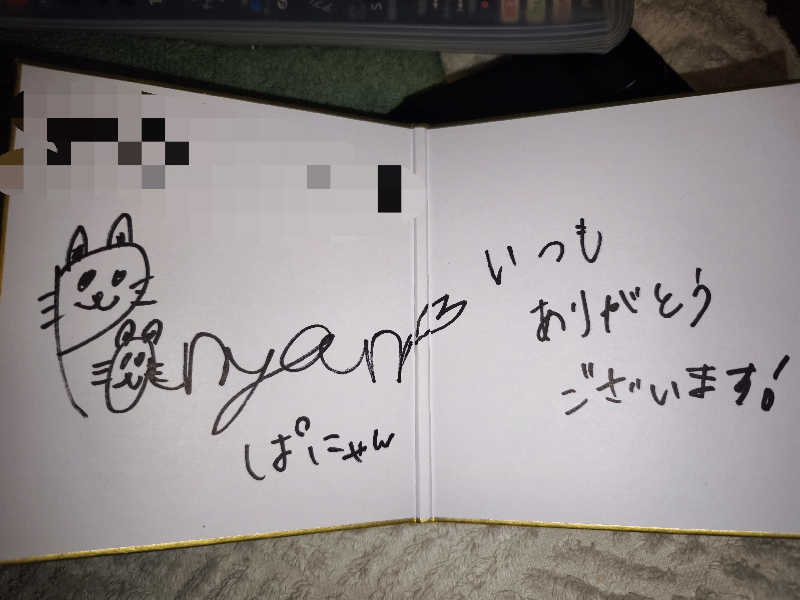 Panyan<3
ぱにゃん
いつも
ありがとう
ございます!